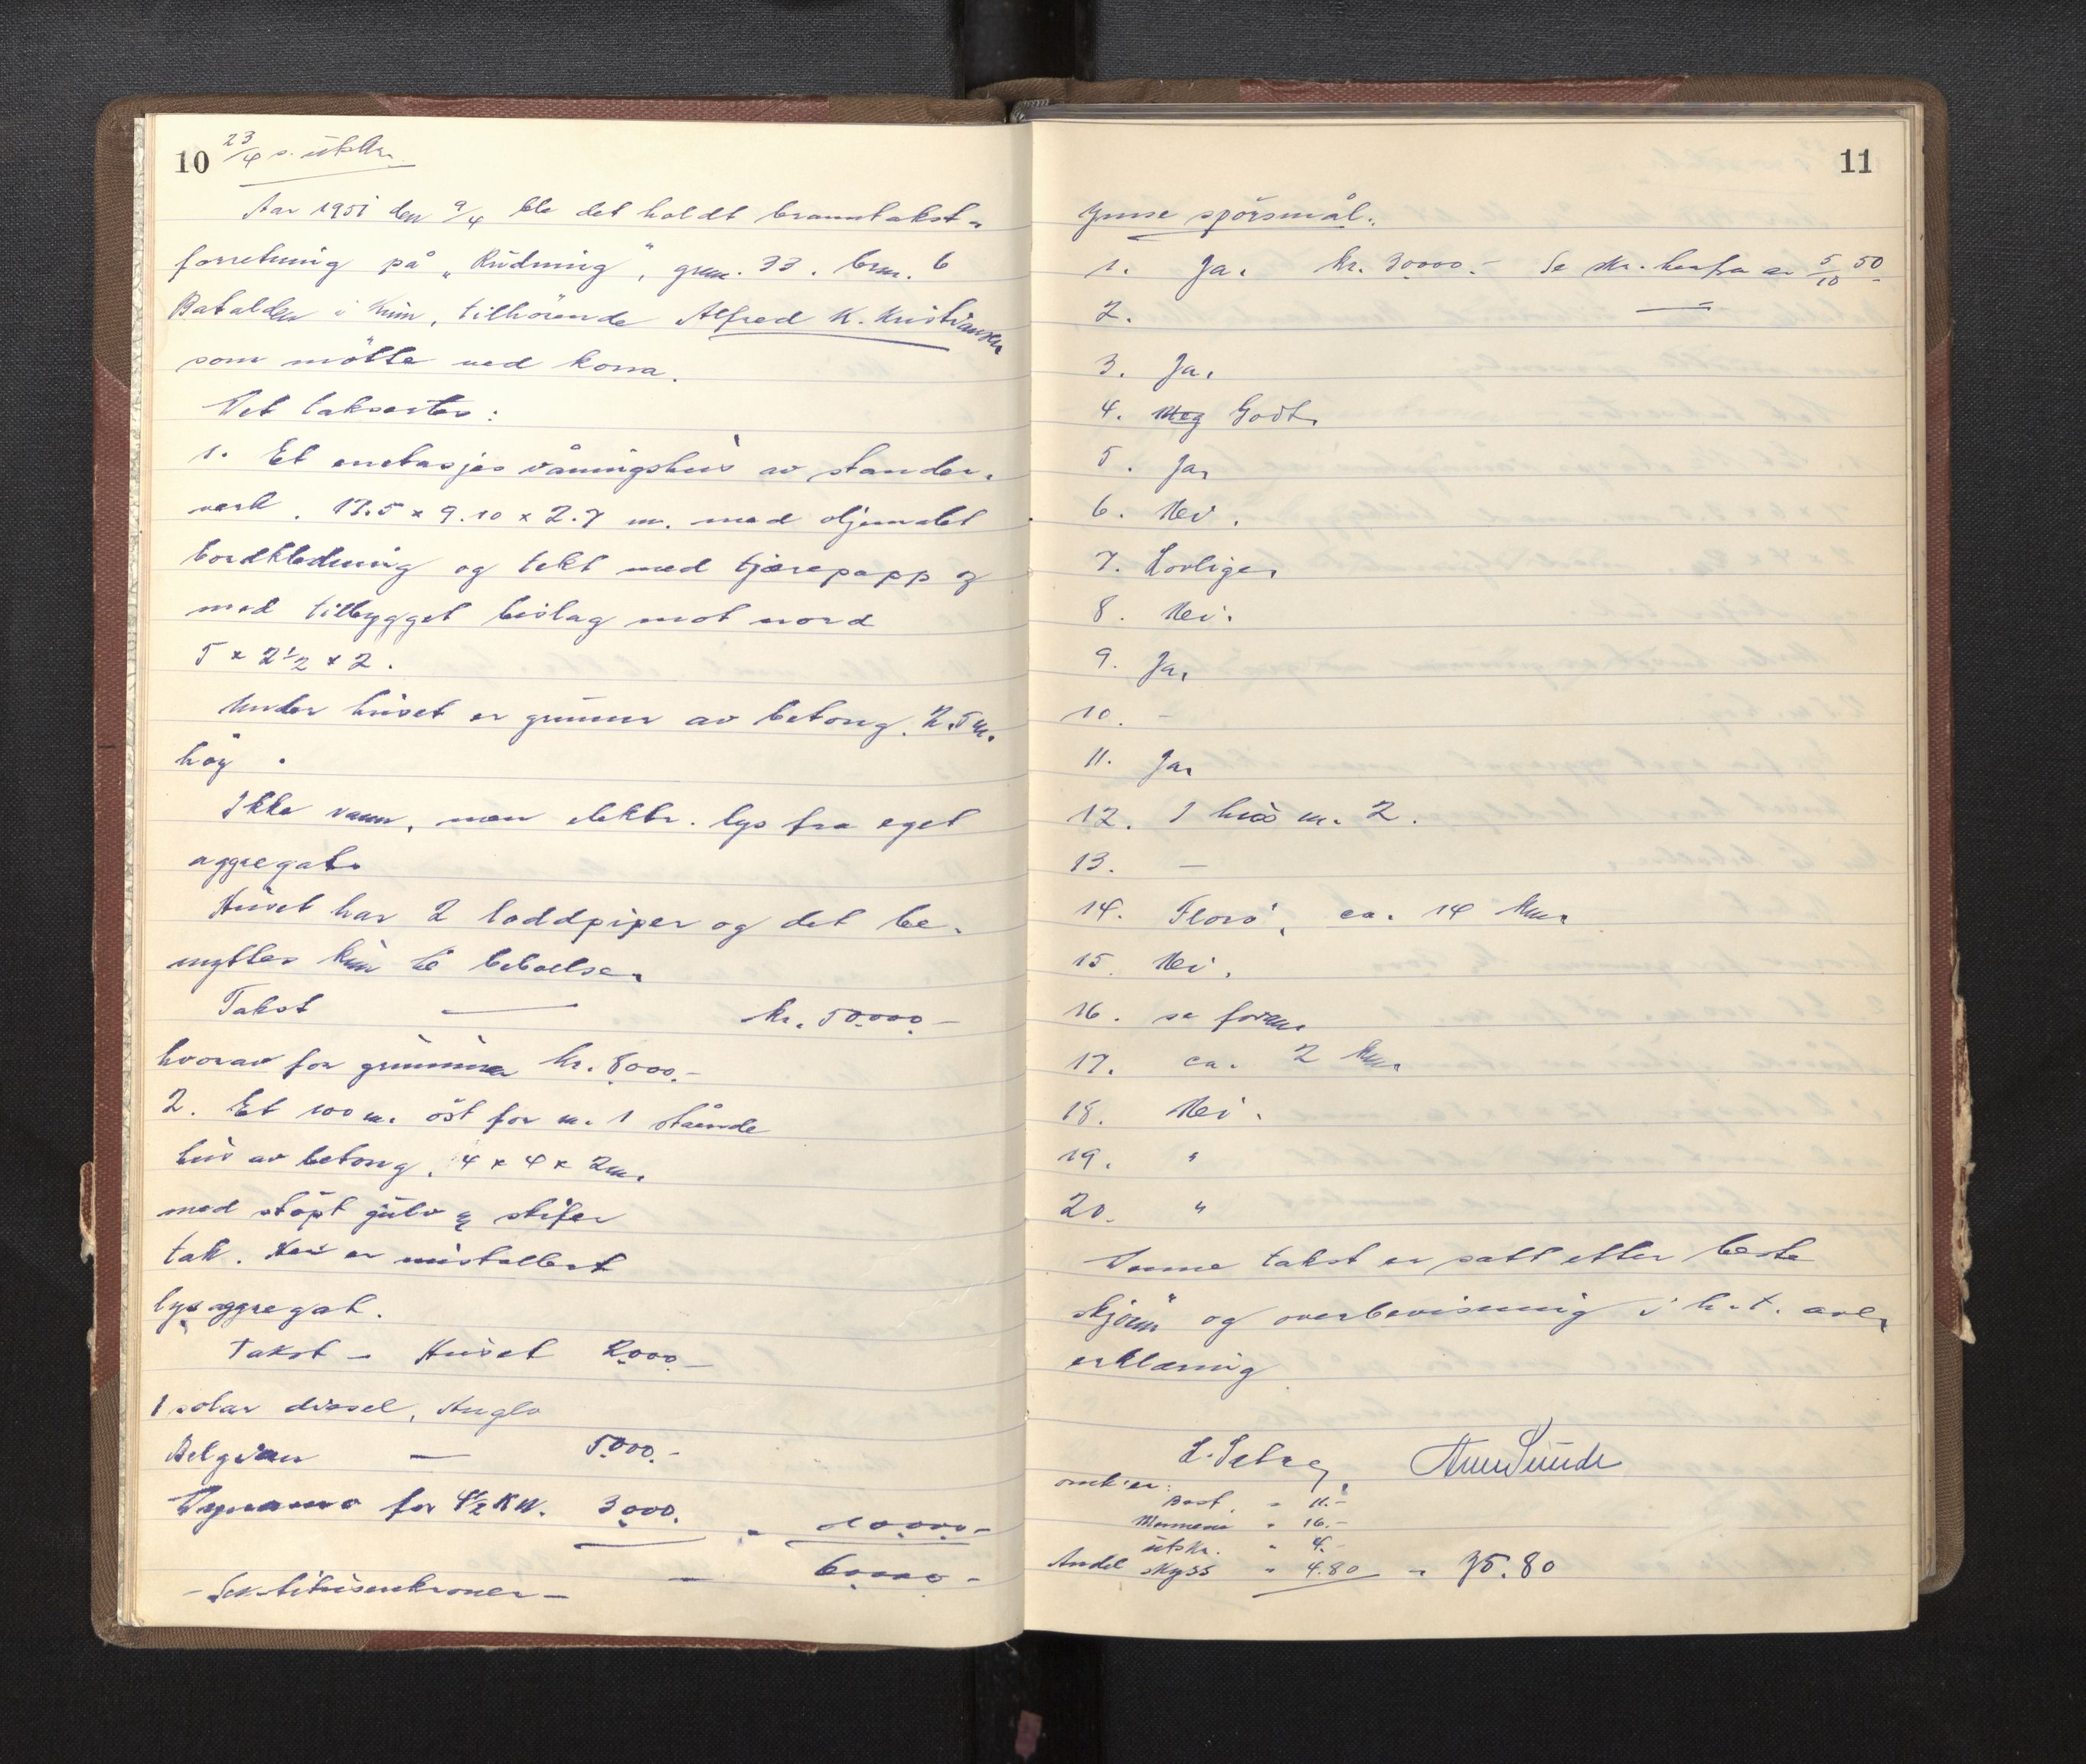 10 23/4 s. utskr.
Aar 1951 den 9/4 ble det holdt branntakst-
forretning på "Rudning", gnr. 33. brnr. 6
Batalden i Kinn, tilhörende Alfred K. Kristiansen
som mötte ved kona.
Det takseres:
1. Et enetasjes våningshus av stender-
verk. 13.5 x 9.10 x 2.7 m. med oljemalt
bordkledning og tekt med tjærepapp og
med tilbygget bislag mot nord
5 x 2 1/2 x 2.
Under huset er grunnr av betong. 2.5 m.
høg.
Ikke vann, men elektr. lys fra eget
aggregat.
Huset har 2 loddpiper og det be-
nyttes kun til beboelse.
Takst — kr. 50.000.-
hvorav for grunnen kr. 8000.-
2. Et 100 m. öst for nr. 1 stående
hus av betong. 4 x 4 x 2 m.
med stöpt gulv og
tak. Her er innstallert
lysaggregat.
Takst - Huset 2000.-
1 solar diesel, Anglo
Belgian — 5000.-
Dynamo for 4 1/2 KW. 3000. - 10.000.-
- Sekstitusenkroner - - 60.000.-
11
Ymse spörsmål.
1. Ja. kr. 30.000.- Se skr. herfra av 5/10 50
2. —
3. Ja.
4. Meg Godt.
5. Ja.
6. Nei.
7. Lovlige.
8. Nei.
9. Ja.
10. -
11. Ja.
12. I hus nr. 2.
13. —
14. Florö, ca. 14 km.
15. Nei.
16. se foran.
17. ca. 2 km.
18. Nei.
19. "
20. "
Denne takst er satt etter beste
skjönn og overbevisning i h.t. avl.
erklæring
Omk. er:
Best. " 11.-
" 16.-
utskr. " 4.-
Andel skyss " 4.80 - 35.80